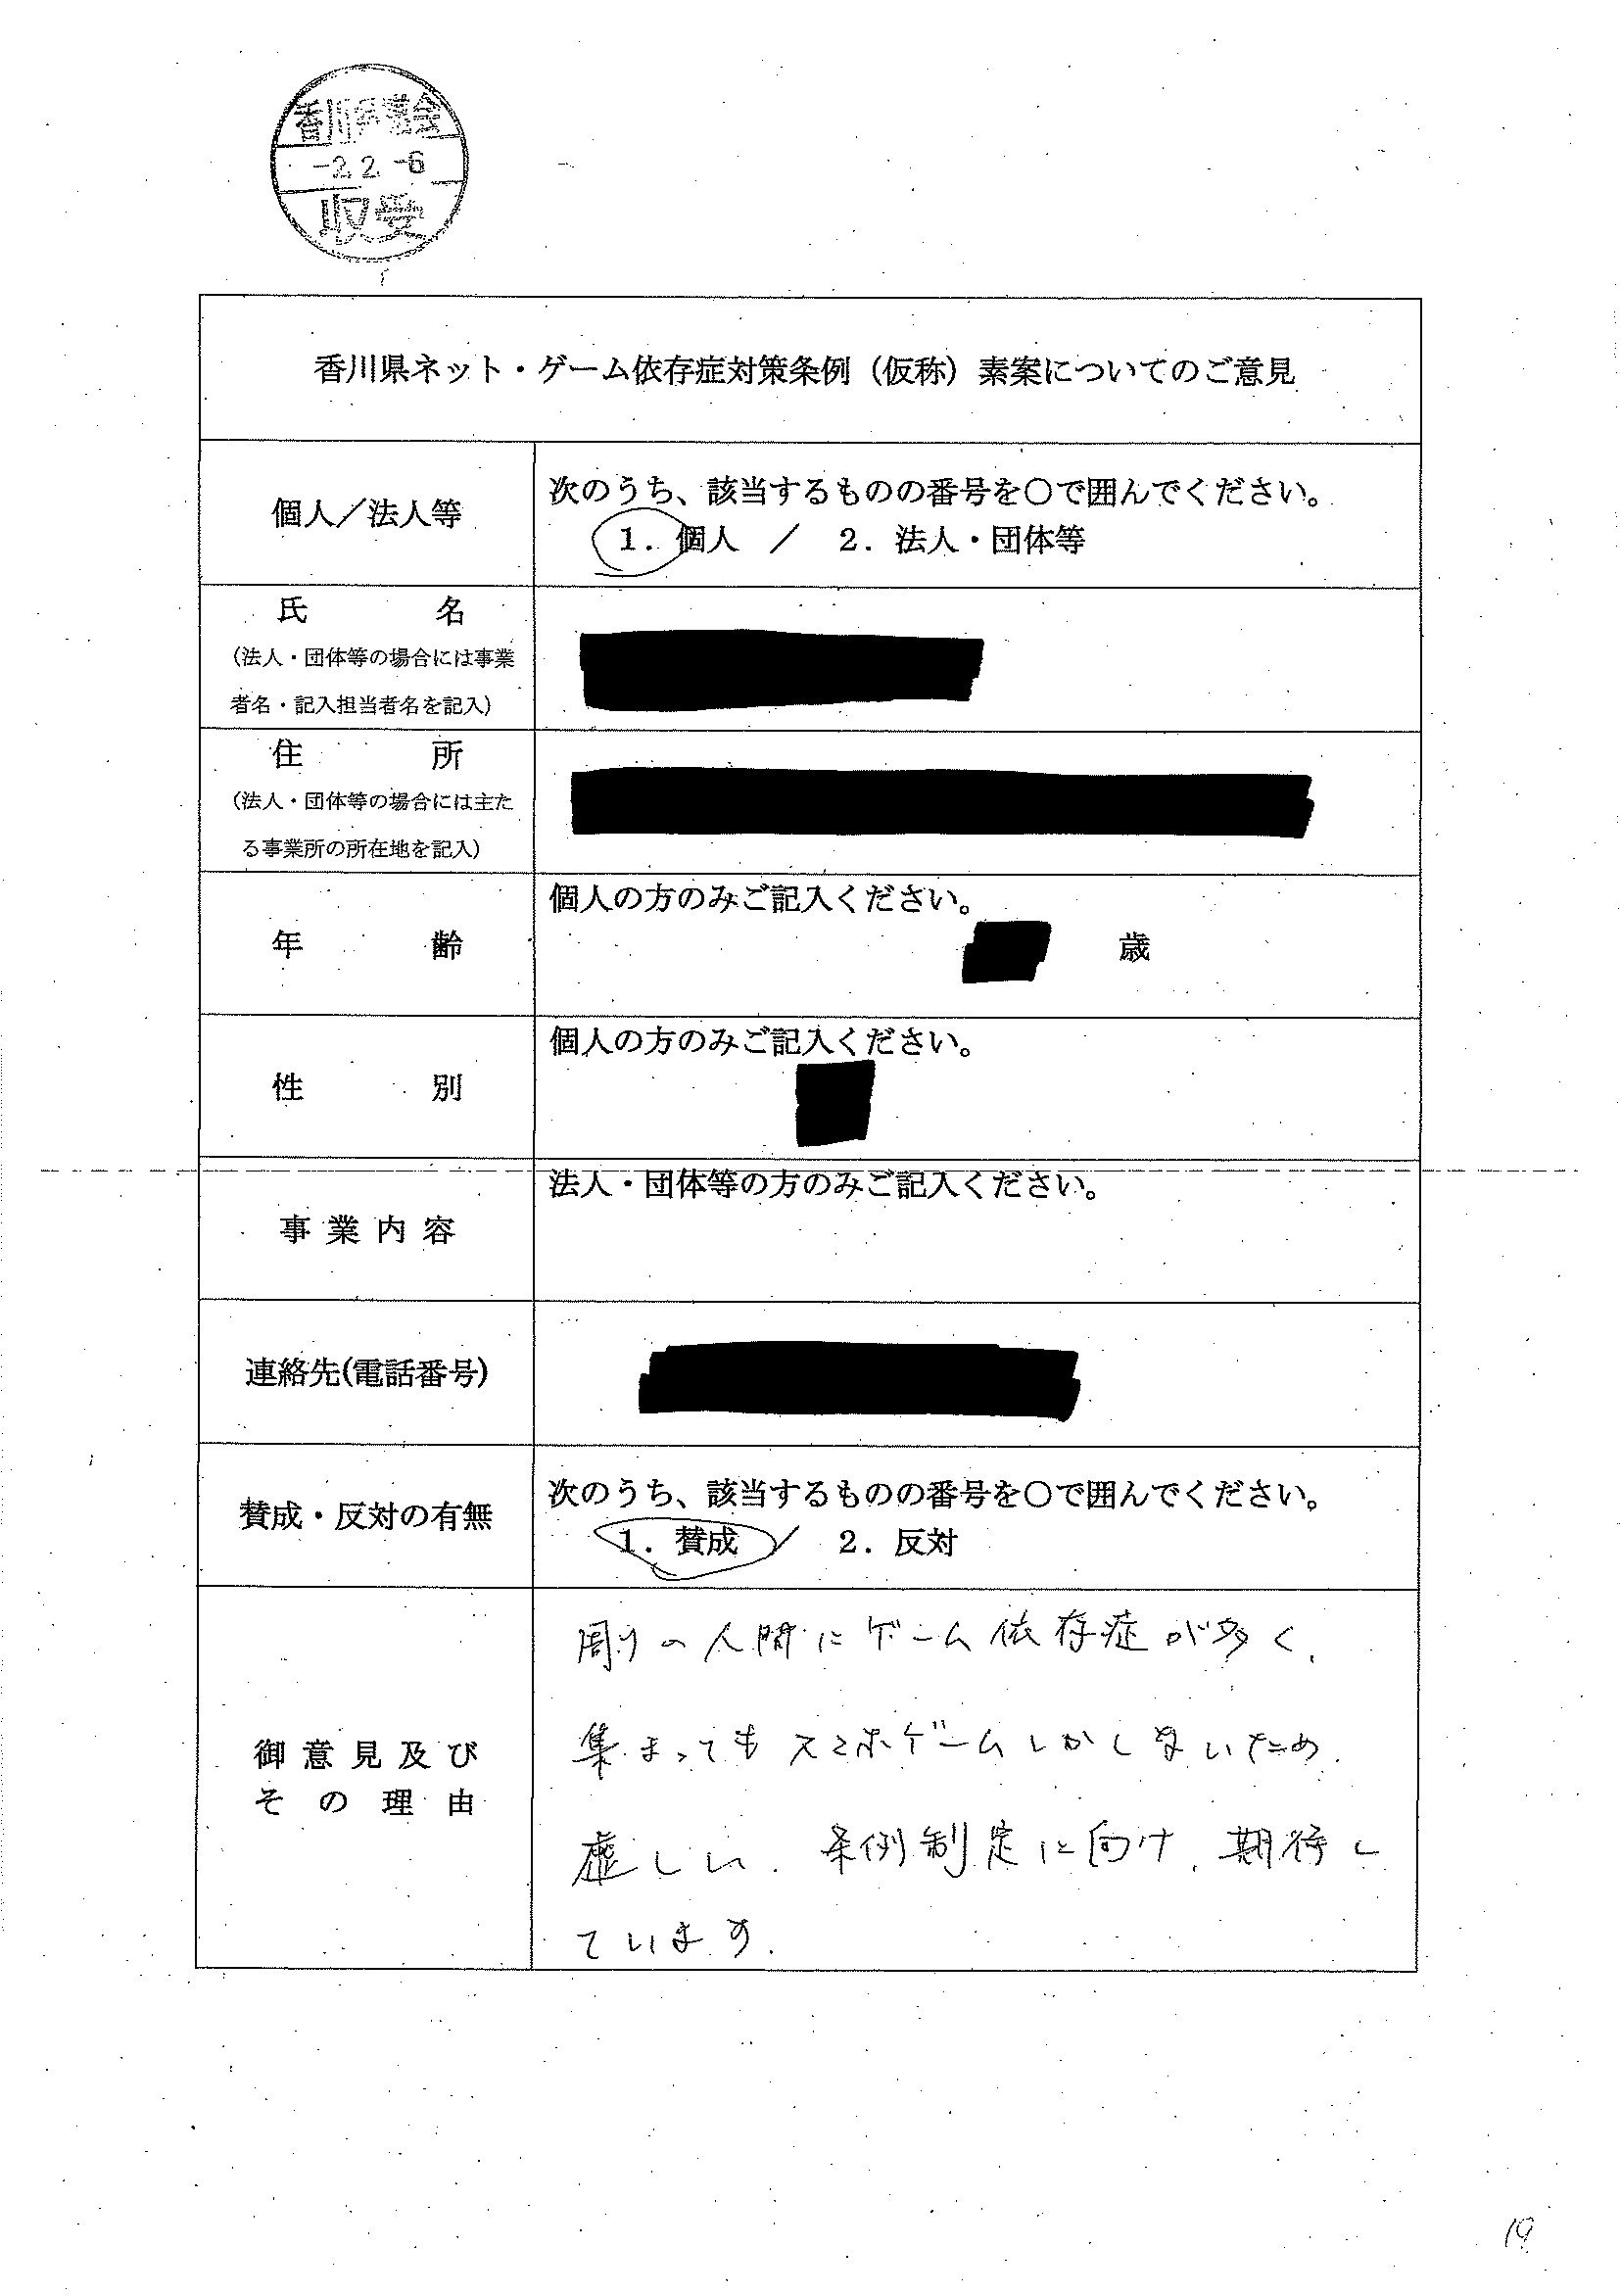 香川県議会
-2.2.-6
収受
香川県ネット・ゲーム依存症対策条例（仮称）素案についてのご意見
個人／法人等
次のうち、該当するものの番号を〇で囲んでください。
1．個人 ／ 2．法人・団体等
氏名
（法人・団体等の場合には事業
者名・記入担当者名を記入）
住所
（法人・団体等の場合には主た
る事業所の所在地を記入）
年齢
個人の方のみご記入ください。
歳
性別
個人の方のみご記入ください。
事業内容
法人・団体等の方のみご記入ください。
連絡先(電話番号)
賛成・反対の有無
次のうち、該当するものの番号を〇で囲んでください。
1．賛成 ／ 2．反対
御意見及び
その理由
周りの人間にゲーム依存症が多く、
集まってもスマホゲームしかしないため、
虚しい。条例制定に向け、期待し
ています。
19